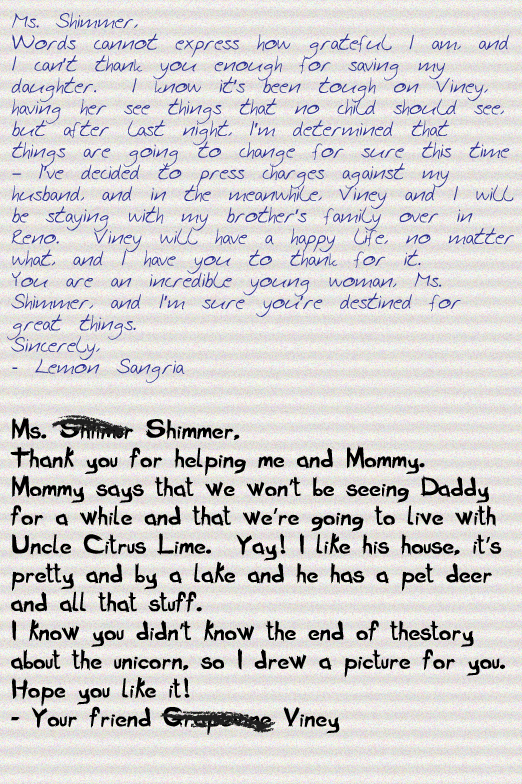 Ms. Shimmer,
Words cannot express how grateful I am, and
I can't thank you enough for saving my
daughter. I know it's been tough on Viney,
having her see things that no child should see,
but after last night, I'm determined that
things are going to change for sure this time
- I've decided to press charges against my
husband, and in the meanwhile, Viney and I will
be staying with my brother's family over in
Reno. Viney will have a happy life, no matter
what, and I have you to thank for it.
You are an incredible young woman, Ms.
Shimmer, and I'm sure you're destined for
great things.
Sincerely,
- Lemon Sangria
Ms. Shimmer,
Thank you for helping me and Mommy.
Mommy says that we won't be seeing Daddy
for a while and that we're going to live with
Uncle Citrus Lime. Yay! I like his house, it's
pretty and by a lake and he has a pet deer
and all that stuff.
I know you didn't know the end of thestory
about the unicorn, so I drew a picture for you.
Hope you like it!
- Your friend Grapevine Viney